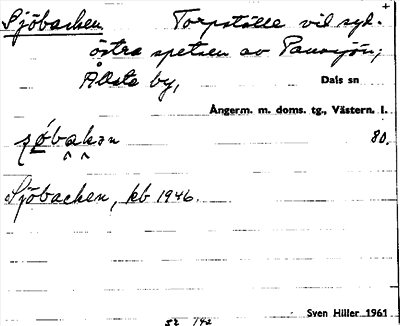 Sjöbacken Torpställe vid syd-
östra spetsen av
Ållsta by, Dals sn
Ångerm. m. doms. tg., Västern. l.
80.
Sjöbacken, kb 1946.
Sven Hiller 1961
52 142